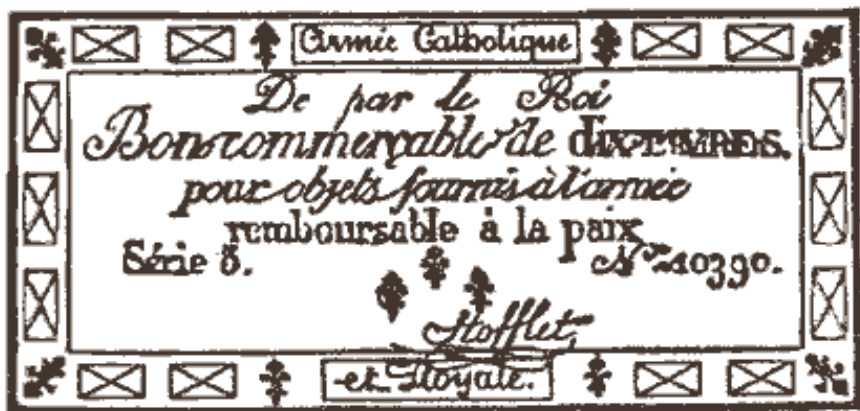 Armée Catholique
De par le Roi
Bon commerçable de dix LIVRES.
pour objets fournis à l'armée
remboursable à la paix
Série 3.
N.º 10390.
Stofflet,
et Royale.